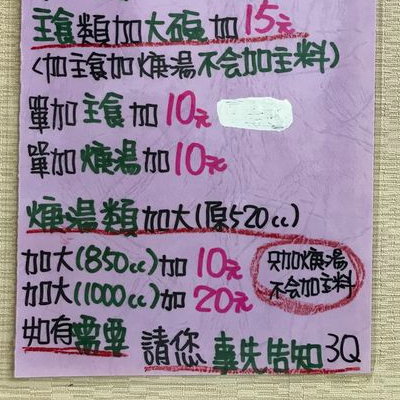 主食類加大碗加15元
(加主食加焿湯不会加主料)
單加主食加10元
單加焿湯加10元
焿湯類加大(原520cc)
加大(850cc)加10元
加大(1000cc)加20元
只加焿湯
不会加主料
如有需要 請您事先告知3Q